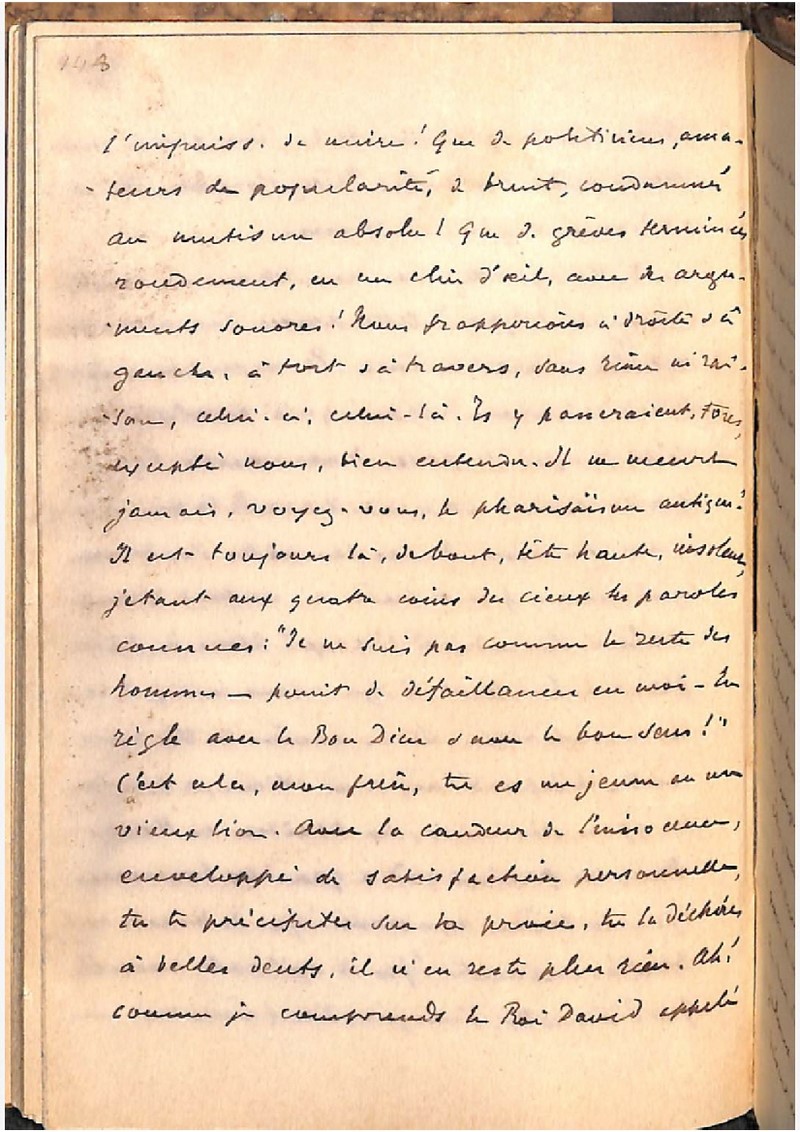 148
l'impuiss. de nuire! Que de politiciens, ama-
teurs de popularité, de bruit, condamnés
au mutisme absolu! Que de grèves terminées
rondement, en un clin d'œil, avec des argu-
ments sonores! Nous frapperions à droite & à
gauche, à tort & à travers, sans rime ni rai-
son, celui-ci, celui-là. Ils y passeraient, tous,
excepté nous, bien entendu. Il ne meurt
jamais, voyez-vous, le pharisaïsme antique!
Il est toujours là, debout, tête haute, insolent,
jetant aux quatre coins des cieux les paroles
connues: "Je ne suis pas comme le reste des
hommes — point de défaillances en moi — En
règle avec le Bon Dieu & avec le bon sens!"
C'est cela, mon frère, tu es un jeune ou un
vieux lion. Avec la candeur de l'innocence,
enveloppé de satisfaction personnelle,
tu te précipites sur ta proie, tu la déchires
à belles dents, il n'en reste plus rien. Ah!
comme je comprends le Roi David appelé